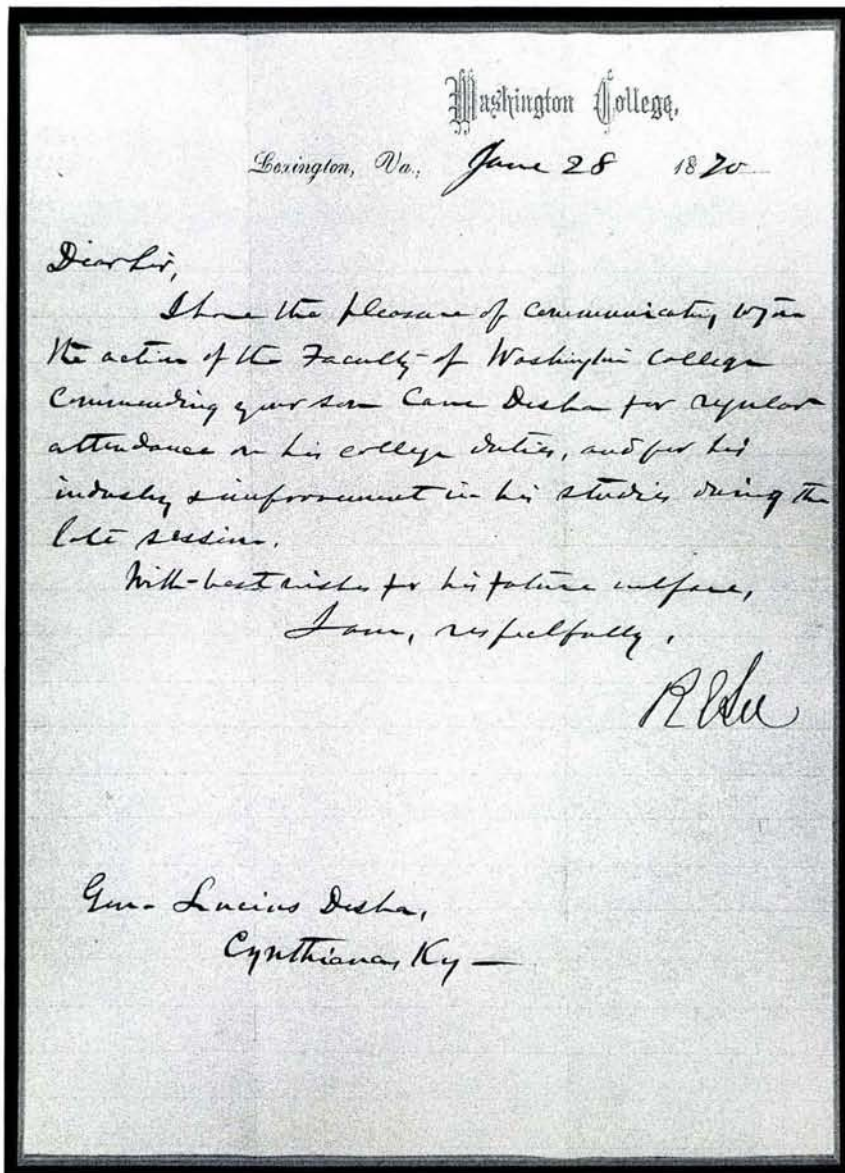 Washington College,
Lexington, Va., June 28 1870
Dear Sir,
I have the pleasure of communicating to you
the action of the Faculty of Washington College
commending your son Cave Desha for regular
attendance on his college duties, and for his
industry & improvement in his studies during the
late session.
With best wishes for his future welfare,
I am, respectfully,
R E Lee
Gen. Lucius Desha,
Cynthiana, Ky —